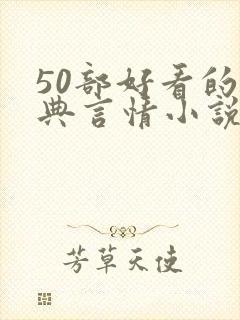 50部好看的
典言情小说
芳草天使